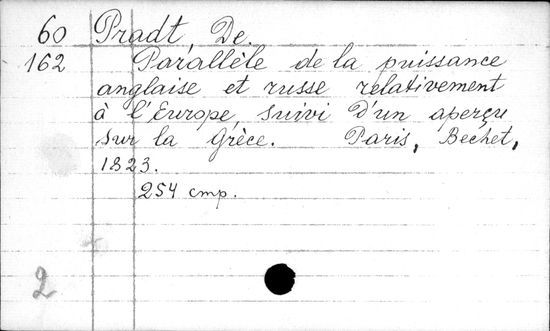 60 Pradt, De.
162 Parallèle de la puissance
anglaise et russe relativement
à l'Europe, suivi d'un aperçu
sur la Grèce. Paris, Bechet,
1823.
254 стр.
2